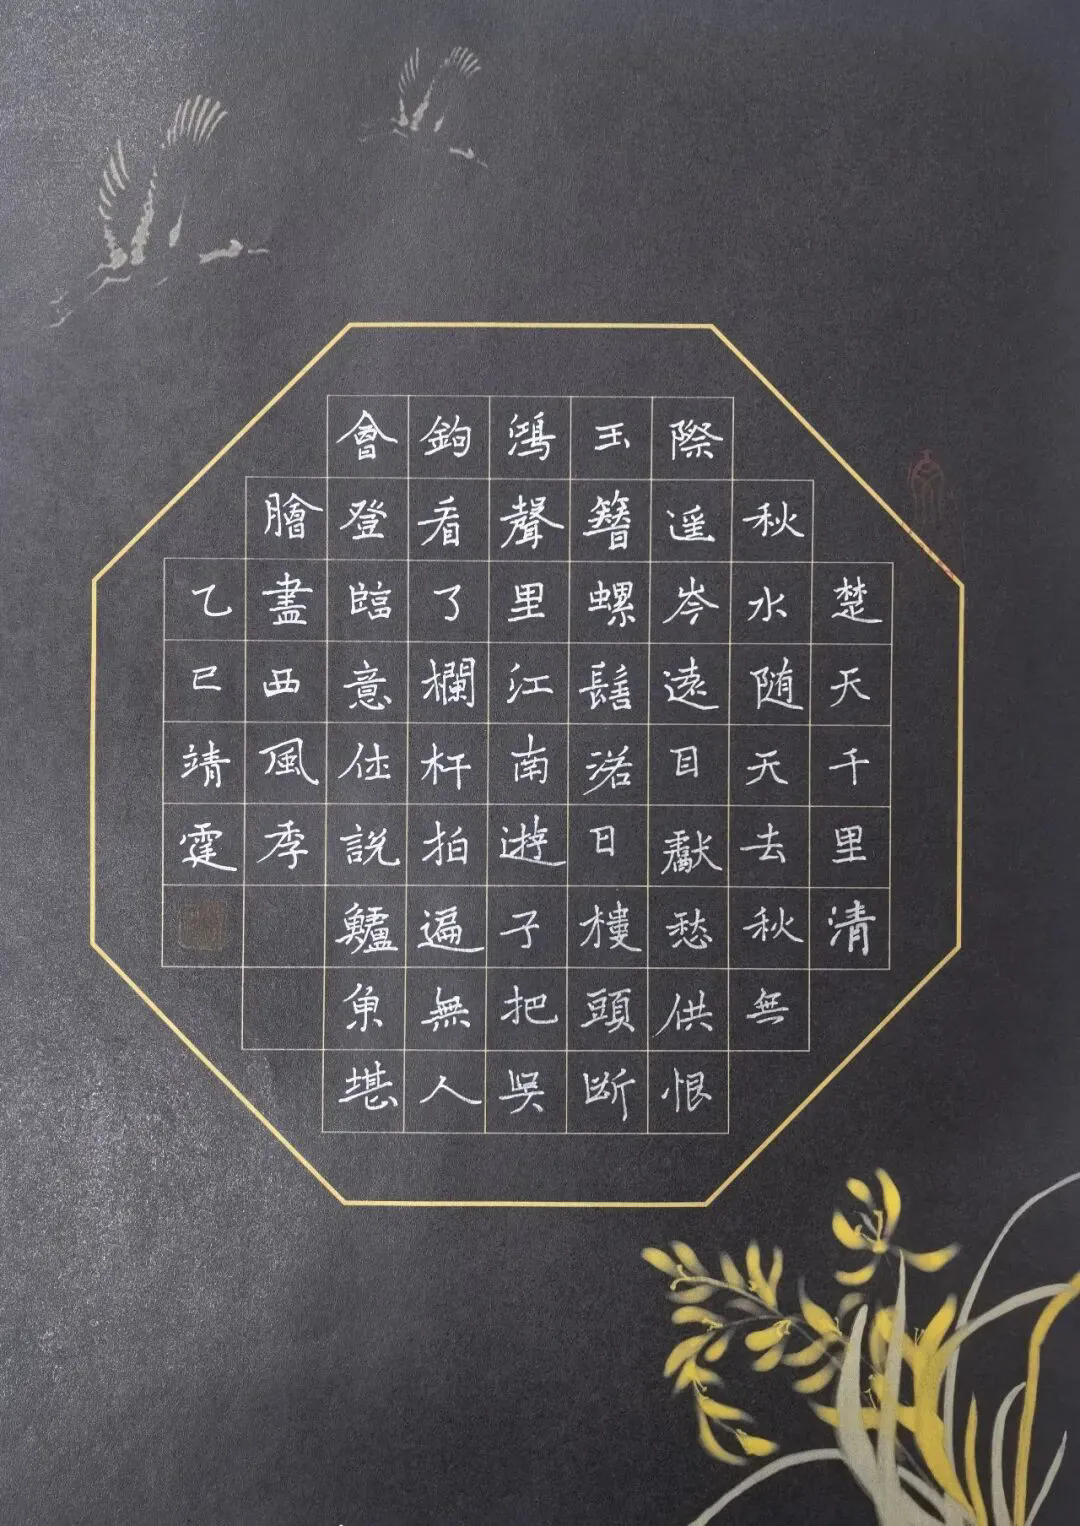 楚天千里清
秋水随天去秋無
際遥岑遠目獻愁供恨
玉簪螺髻落日樓頭斷
鴻聲里江南遊子把吳
鉤看了欄杆拍遍無人
會登臨意休説鱸魚堪
膾盡西風季
乙巳靖霆